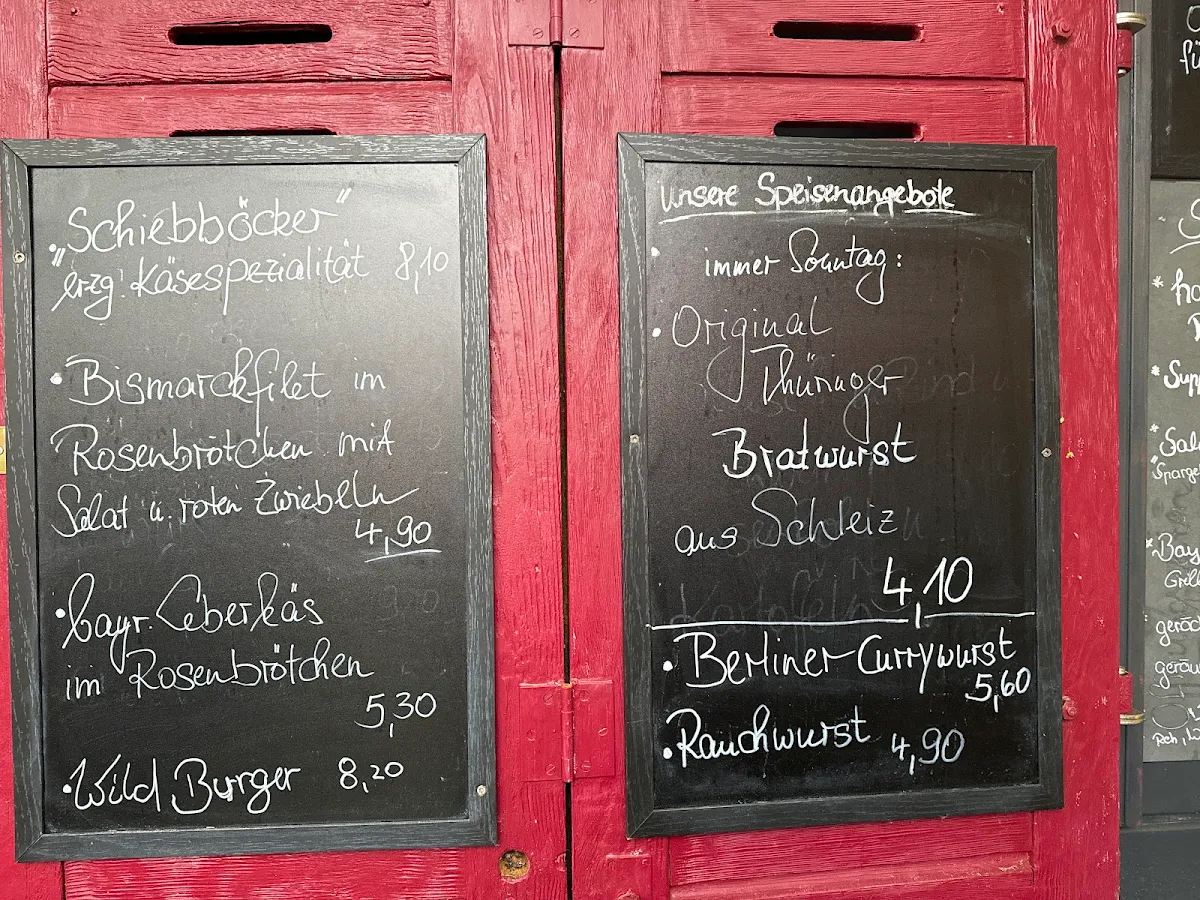 "Schiebböcker"
erzg. Käsespezialität 8,10
• Bismarckfilet im
Rosenbrötchen mit
Salat u. roten Zwiebeln
4,90
• bayr. Leberkäs
im Rosenbrötchen
5,30
• Wild Burger 8,20
unsere Speisenangebote
• immer Sonntag:
• Original
Thüringer
Bratwurst
aus Schleiz
4,10
• Berliner Currywurst
5,60
• Rauchwurst 4,90